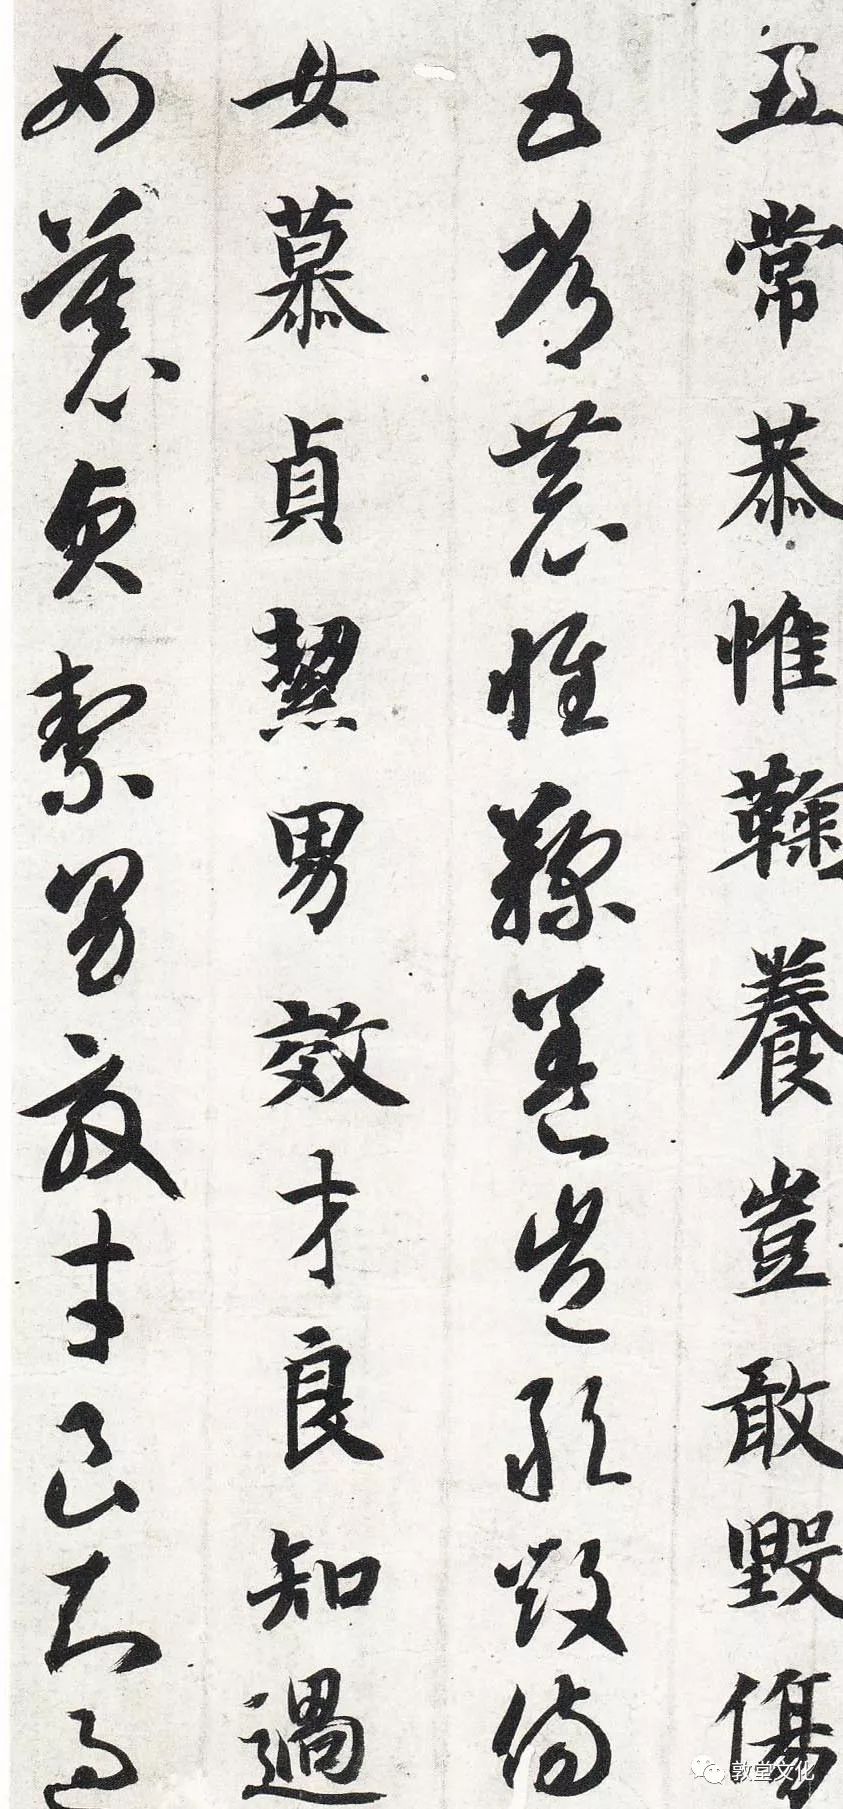 五常恭惟鞠養豈敢毀傷
五常恭惟鞠養豈敢毀傷
女慕貞絜男效才良知過
女慕貞絜男效才良知過
敦堂文化